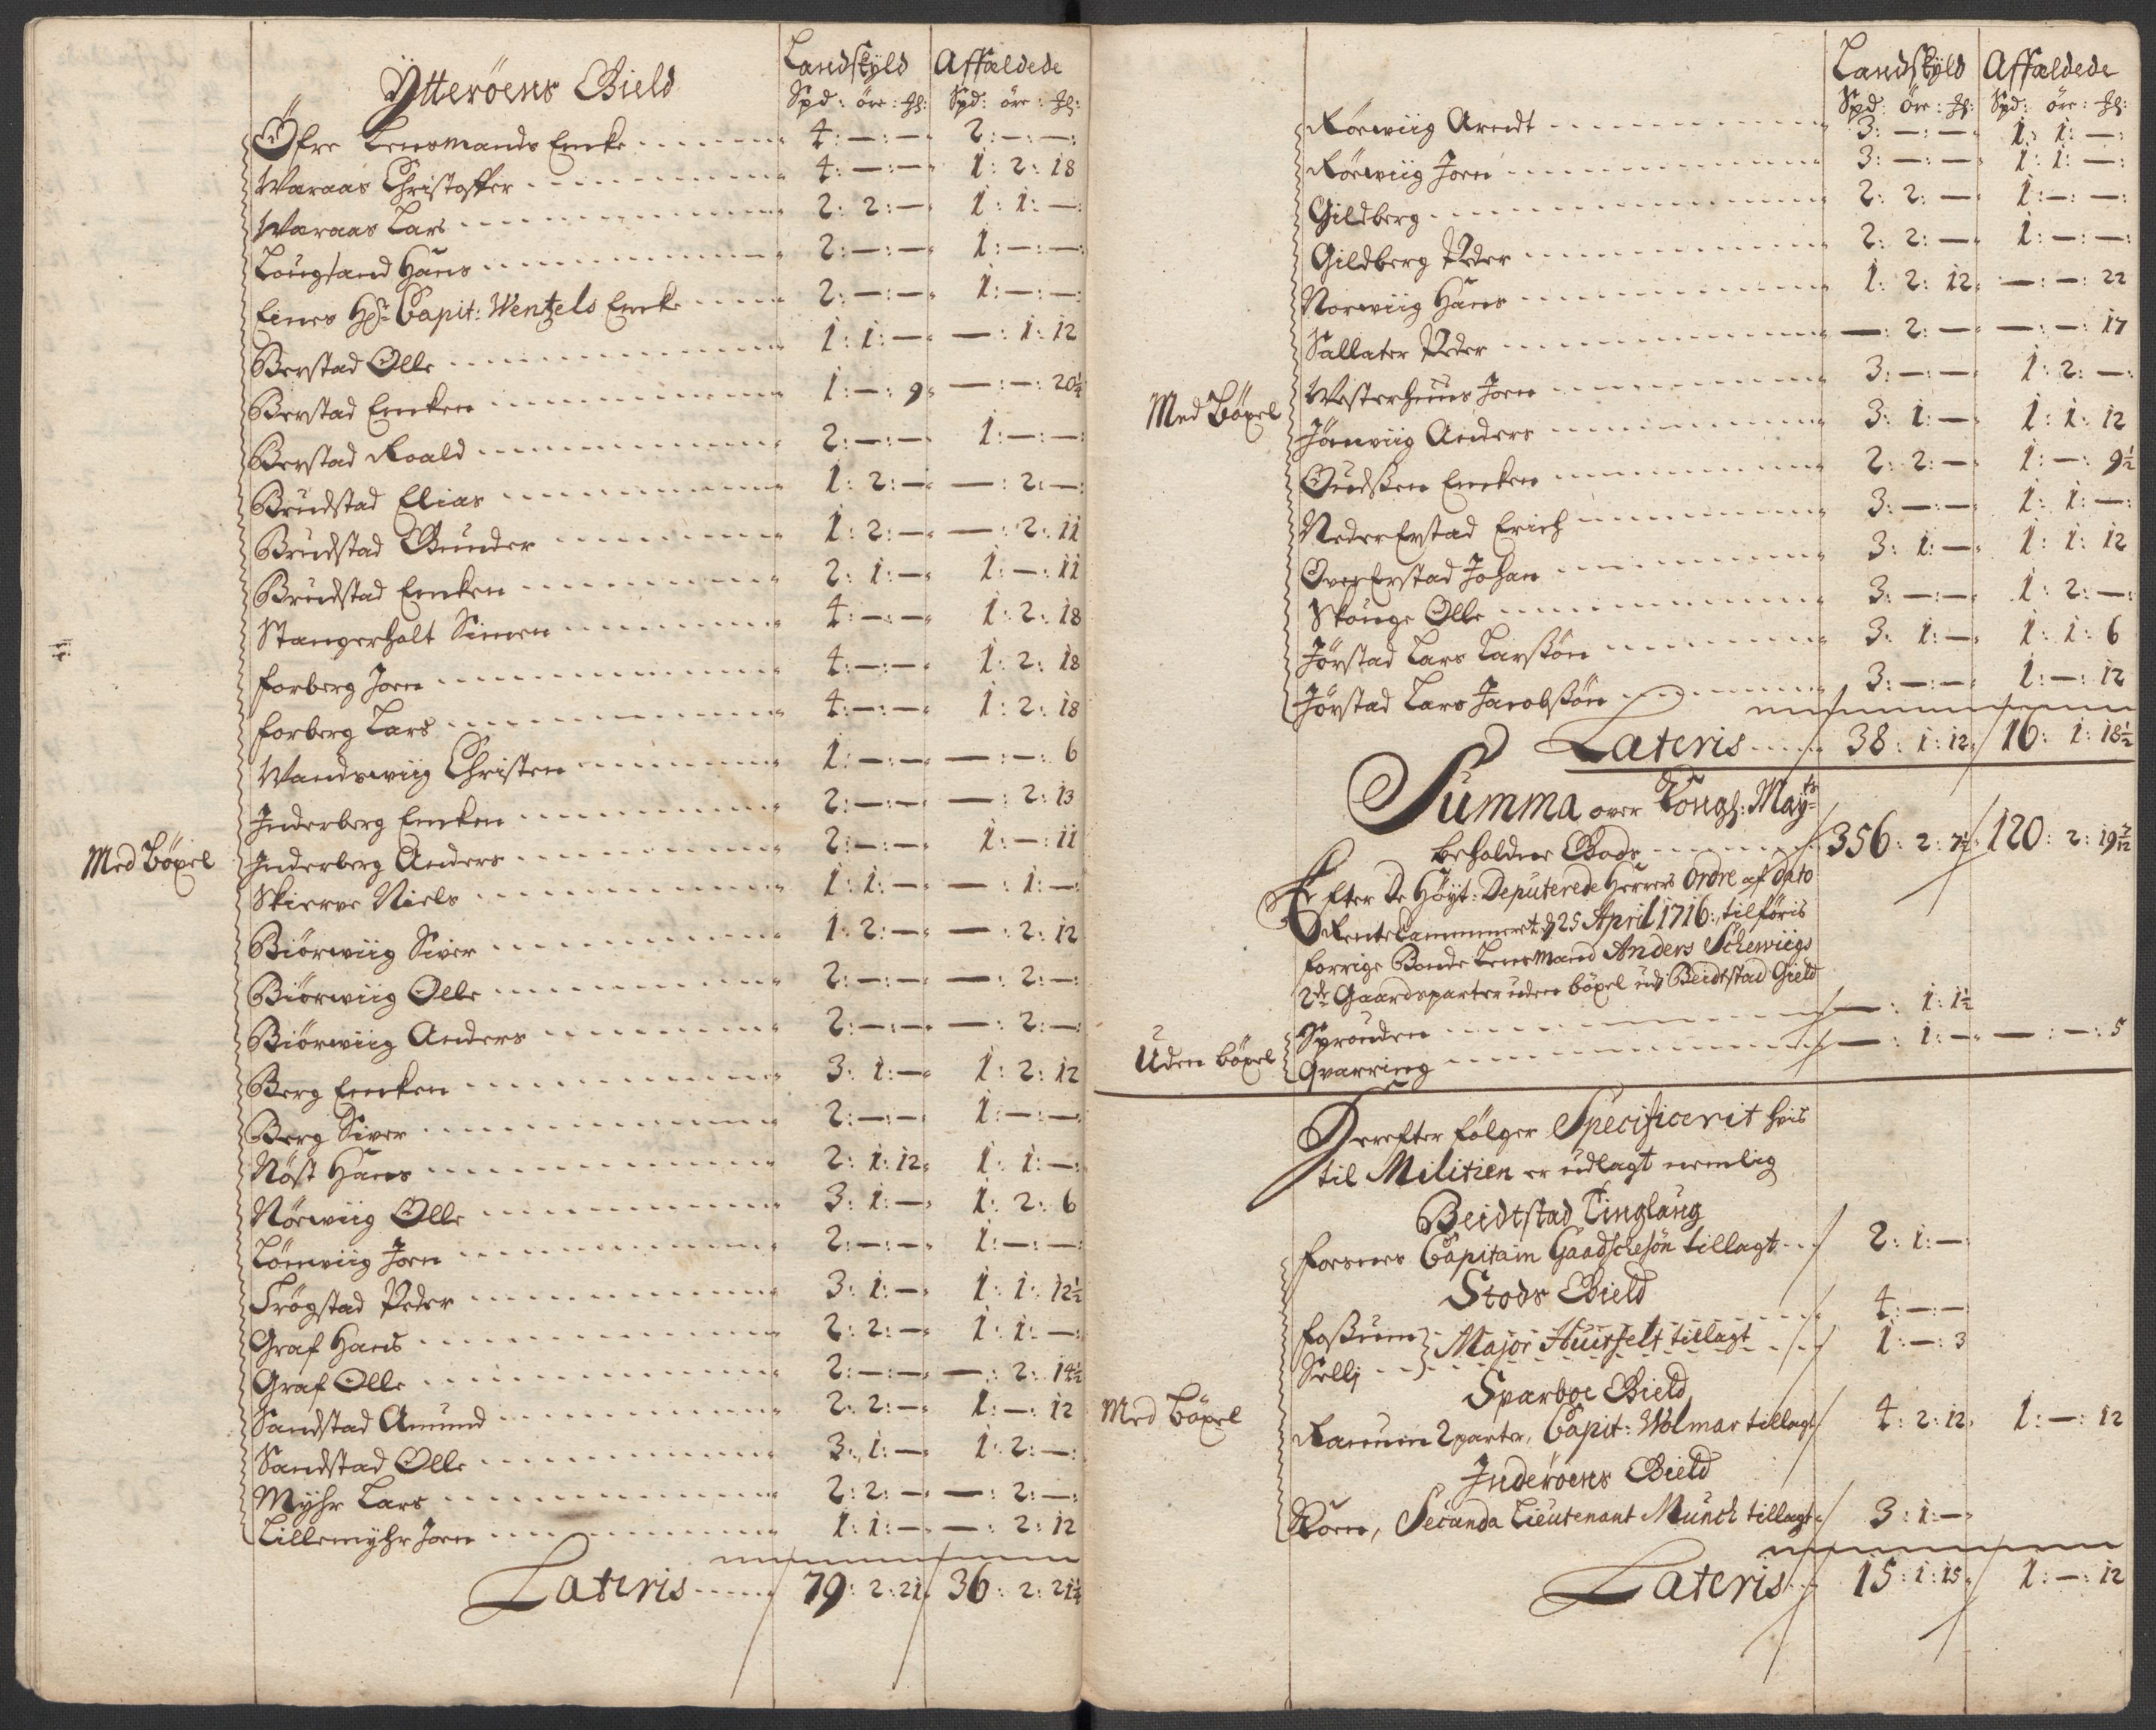 Ytterøens Gield
Landskyld Affældede
Spd: öre: ₰: Spd: öre: ₰:
Øfre Lensmands Encke 4:—:— 2:—:—
Waraas Christoffer 4:—:— 1:2:18
Waraas Lars 2:2:— 1:1:—
Lougsand Hans 2:—:— 1:—:—
Eines Hr: Capit: Wentzels Encke 2:—:— 1:—:—
Berstad Olle 1:1:— —:1:12
Berstad Encken 1:—:9 —:—:20½
Berstad Roald 2:—:— 1:—:—
Brudstad Elias 1:2:— —:2:—
Brudstad Gunder 1:2:— —:2:11
Brudstad Encken 2:1:— 1:—:11
Stangerholt Simen 4:—:— 1:2:18
Forberg Joen 4:—:— 1:2:18
Forberg Lars 4:—:— 1:2:18
Wandswiig Christen 1:—:— —:—:6
Inderberg Encken 2:—:— —:2:13
Med Böxel Inderberg Anders 2:—:— 1:—:11
Skierve Niels 1:1:— —:1:—
Biörwiig Siver 1:2:— —:2:12
Biörwiig Olle 2:—:— —:2:—
Biörwiig Anders 2:—:— —:2:—
Berg Encken 3:1:— 1:2:12
Berg Siver 2:—:— 1:—:—
Nöst Hans 2:1:12 1:1:—
Nörwiig Olle 3:1:— 1:2:6
Lömviig Joen 2:—:— 1:—:—
Trögstad Peder 3:1:— 1:1:12½
Graf Hans 2:2:— 1:1:—
Graf Olle 2:—:— —:2:14½
Sandstad Amund 2:2:— 1:—:12
Sandstad Olle 3:1:— 1:2:—
Myhr Lars 2:2:— —:2:—
Lillemyhr Joen 1:1:— —:2:12
Lateris 79:2:21 36:2:21¼
Landskyld Affældede
Spd: öre: ₰: Spd: öre: ₰:
Rörwiig Arendt 3:—:— 1:1:—
Rörwiig Joen 3:—:— 1:1:—
Gildberg 2:2:— 1:—:—
Gildberg Peder 2:2:— 1:—:—
Norwiig Hans 1:2:12 —:—:22
Sallater Peder —:2:— —:—:17
Med Böxel Westerhuus Joen 3:—:— 1:2:—
Jörnviig Anders 3:1:— 1:1:12
Oudßen Encken 2:2:— 1:—:9½
Neder Erstad Erich 3:—:— 1:1:—
Over Erstad Johan 3:1:— 1:1:12
Skouge Olle 3:—:— 1:2:—
Jörstad Lars Larßön 3:1:— 1:1:6
Jörstad Lars Jacobßön 3:—:— 1:—:12
Lateris 38:1:12 16:1:18½
Summa over Kongl: Mayts
beholdne Gods 356:2:7½ 120:2:19 7/12
Efter De Høyt: Deputerede Herrers Ordre af Dato
Rentecammeret d 25 April 1716: tilføris
forrige Bonde Lensmand Anders Schewiigs
2de Gaardsparter uden böxel udi Beidtstad Gield
Sprouden —:1:1½
Uden böxel Qvarring —:1:— —:—:5
Derefter følger Specificerit hvis
til Militien er udlagt nemlig
Beidtstad Tinglaug
Forsnes Capitain Gaadschesön tillagt 2:1:—
Stods Gield
Foßum 4:—:—
Major Huusfelt tillagt
Sellj 1:—:3
Sparboe Gield
Med Böxel Ramum 2 parter, Capit: Wolmar tillagt 4:2:12 1:—:12
Inderöens Gield
Roen, Secunda Lieutenant Munch tillagt 3:1:—
Lateris 15:1:15 1:—:12